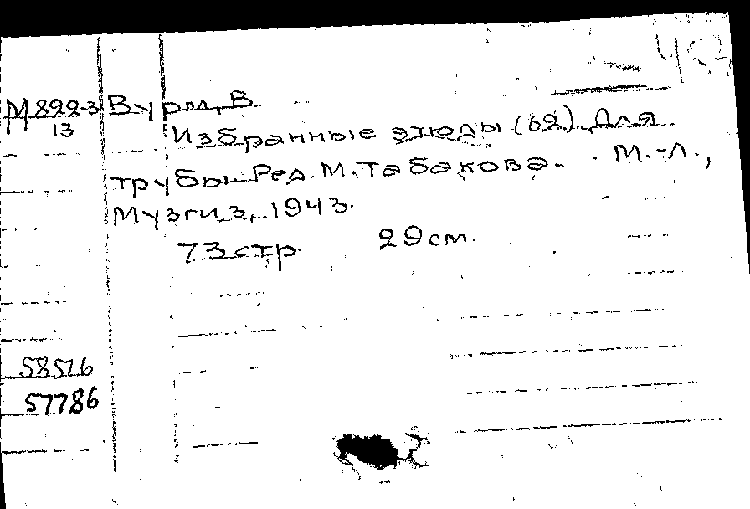 М8223 Вурм, В.
13
Избранные этюды (62) для
трубы. Ред. М. Табакова. М.-Л.,
Музгиз, 1943.
73 стр. 29 см.
58516
57786